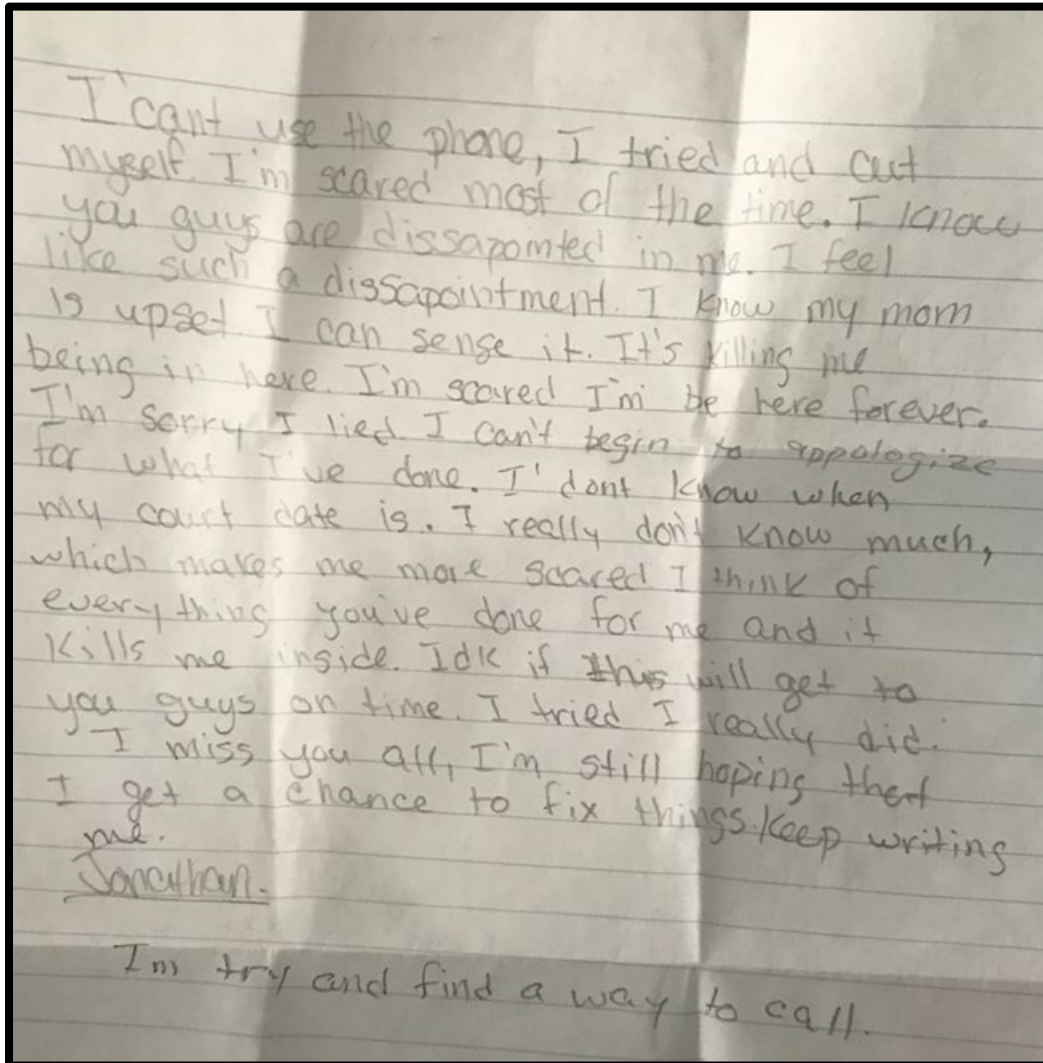 I cant use the phone, I tried and cut
myself. I'm scared most of the time. I know
you guys are dissapointed in me. I feel
like such a dissapointment. I know my mom
is upset I can sense it. It's killing me
being in here. I'm scared I'm be here forever.
I'm sorry I lied. I can't begin to appologize
for what I've done. I'dont know when
my court date is. I really don't know much,
which makes me more scared I think of
everything you've done for me and it
kills me inside. Idk if this will get to
you guys on time. I tried I really did.
I miss you all, I'm still hoping that
I get a chance to fix things. Keep writing
me.
Jonathan.
Im try and find a way to call.